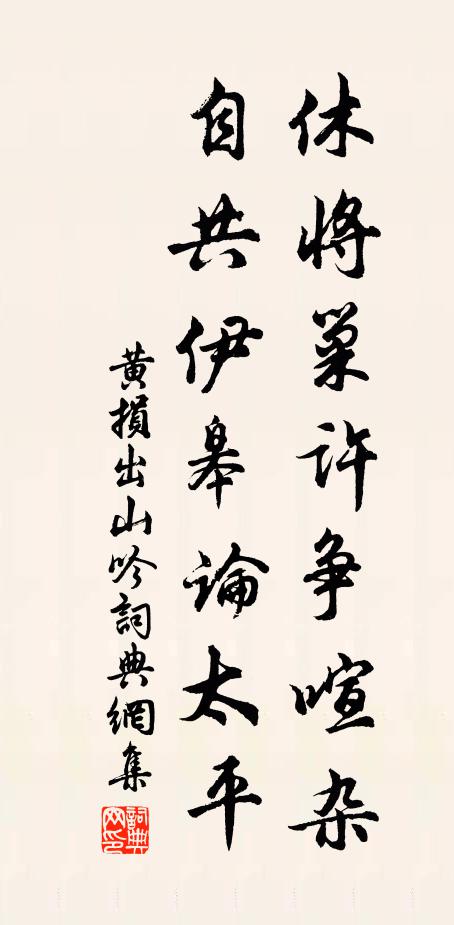 休將巢許争喧杂
自共伊皋論太平
黄損出山吟詞典網集
詞典网印